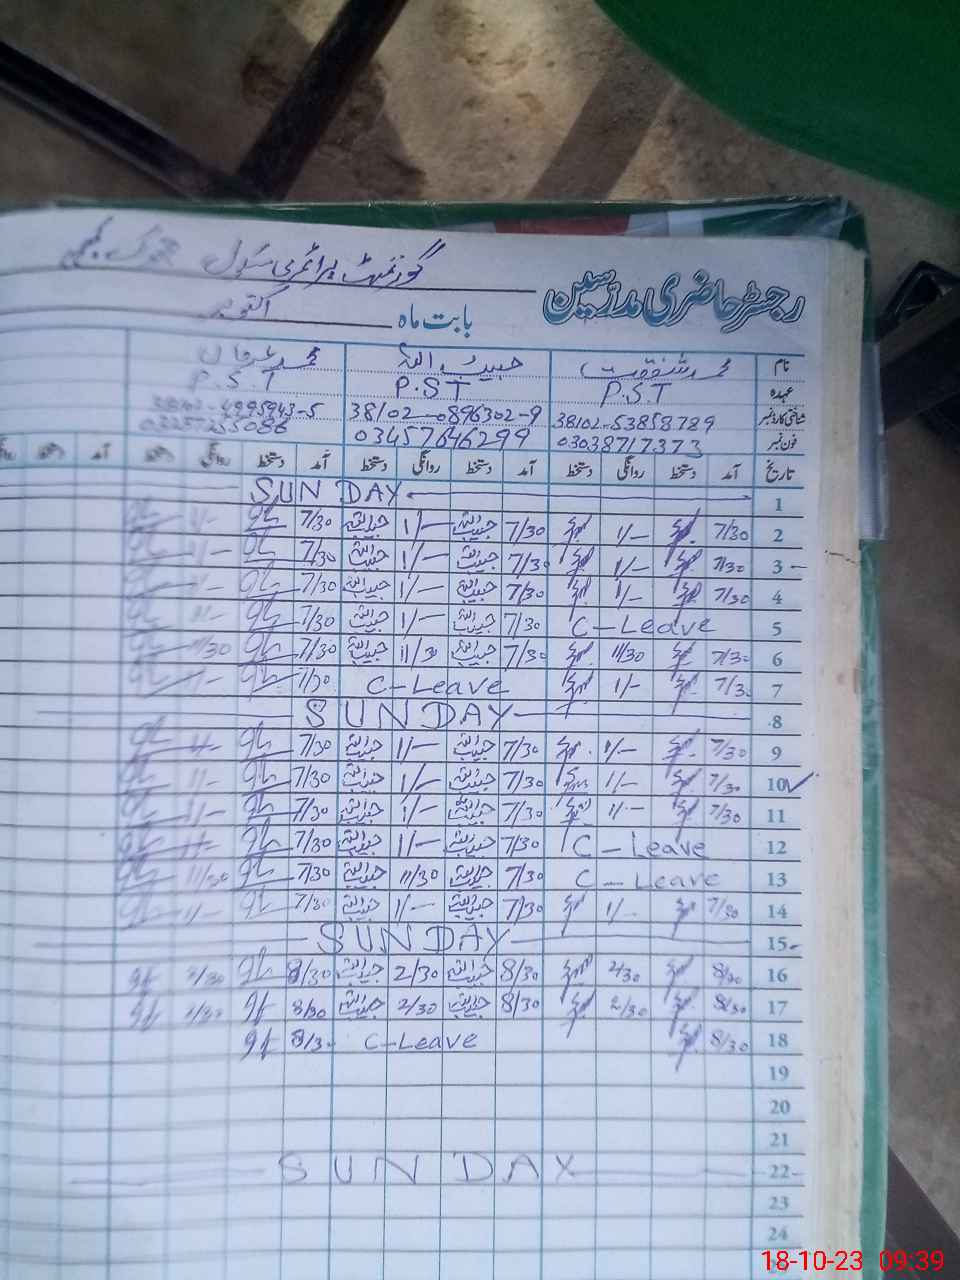 رجسٹر حاضری مدرسین گورنمنٹ پرائمری سکول
بابت ماہ اکتوبر
نام محمد شفقت حبیب اللہ محمد عرفان
عہدہ P.S.T P.S.T P.S.T
شناختی کارڈ نمبر 38102-53858789 38102-0896302-9
فون نمبر 03038717373 03457646299
تاریخ آمد دستخط روانگی دستخط آمد دستخط روانگی دستخط آمد دستخط روانگی دستخط آمد
1 SUNDAY
2 7/30 1/- 7/30 حبیب اللہ 1/- حبیب اللہ 7/30
3 7/30 1/- 7/30 حبیب اللہ 1/- حبیب اللہ 7/30
4 7/30 1/- 7/30 حبیب اللہ 1/- حبیب اللہ 7/30
5 C-Leave 7/30 حبیب اللہ 1/- حبیب اللہ 7/30
6 7/30 11/30 7/30 حبیب اللہ 11/30 حبیب اللہ 7/30 11/30
7 7/30 1/- C-Leave 7/30
8 SUNDAY
9 7/30 1/- 7/30 حبیب اللہ 1/- حبیب اللہ 7/30
10 7/30 1/- 7/30 حبیب اللہ 1/- حبیب اللہ 7/30
11 7/30 1/- 7/30 حبیب اللہ 1/- حبیب اللہ 7/30
12 C-Leave 7/30 حبیب اللہ 1/- حبیب اللہ 7/30
13 C-Leave 7/30 حبیب اللہ 11/30 حبیب اللہ 7/30 11/30
14 7/30 1/- 7/30 حبیب اللہ 1/- حبیب اللہ 7/30
15 SUNDAY
16 8/30 2/30 8/30 حبیب اللہ 2/30 حبیب اللہ 8/30 2/30
17 8/30 2/30 8/30 حبیب اللہ 2/30 حبیب اللہ 8/30 2/30
18 8/30 C-Leave 8/30
19
20
21
22 SUNDAY
23
24
18-10-23 09:39